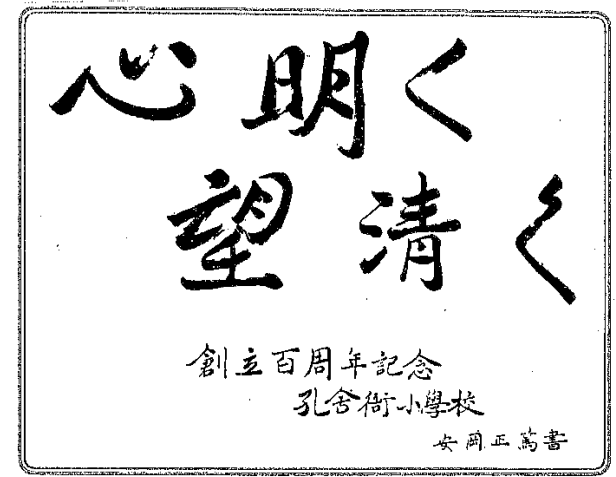 心明く
望清く
創立百周年記念
孔舎衙小學校
安岡正篤書